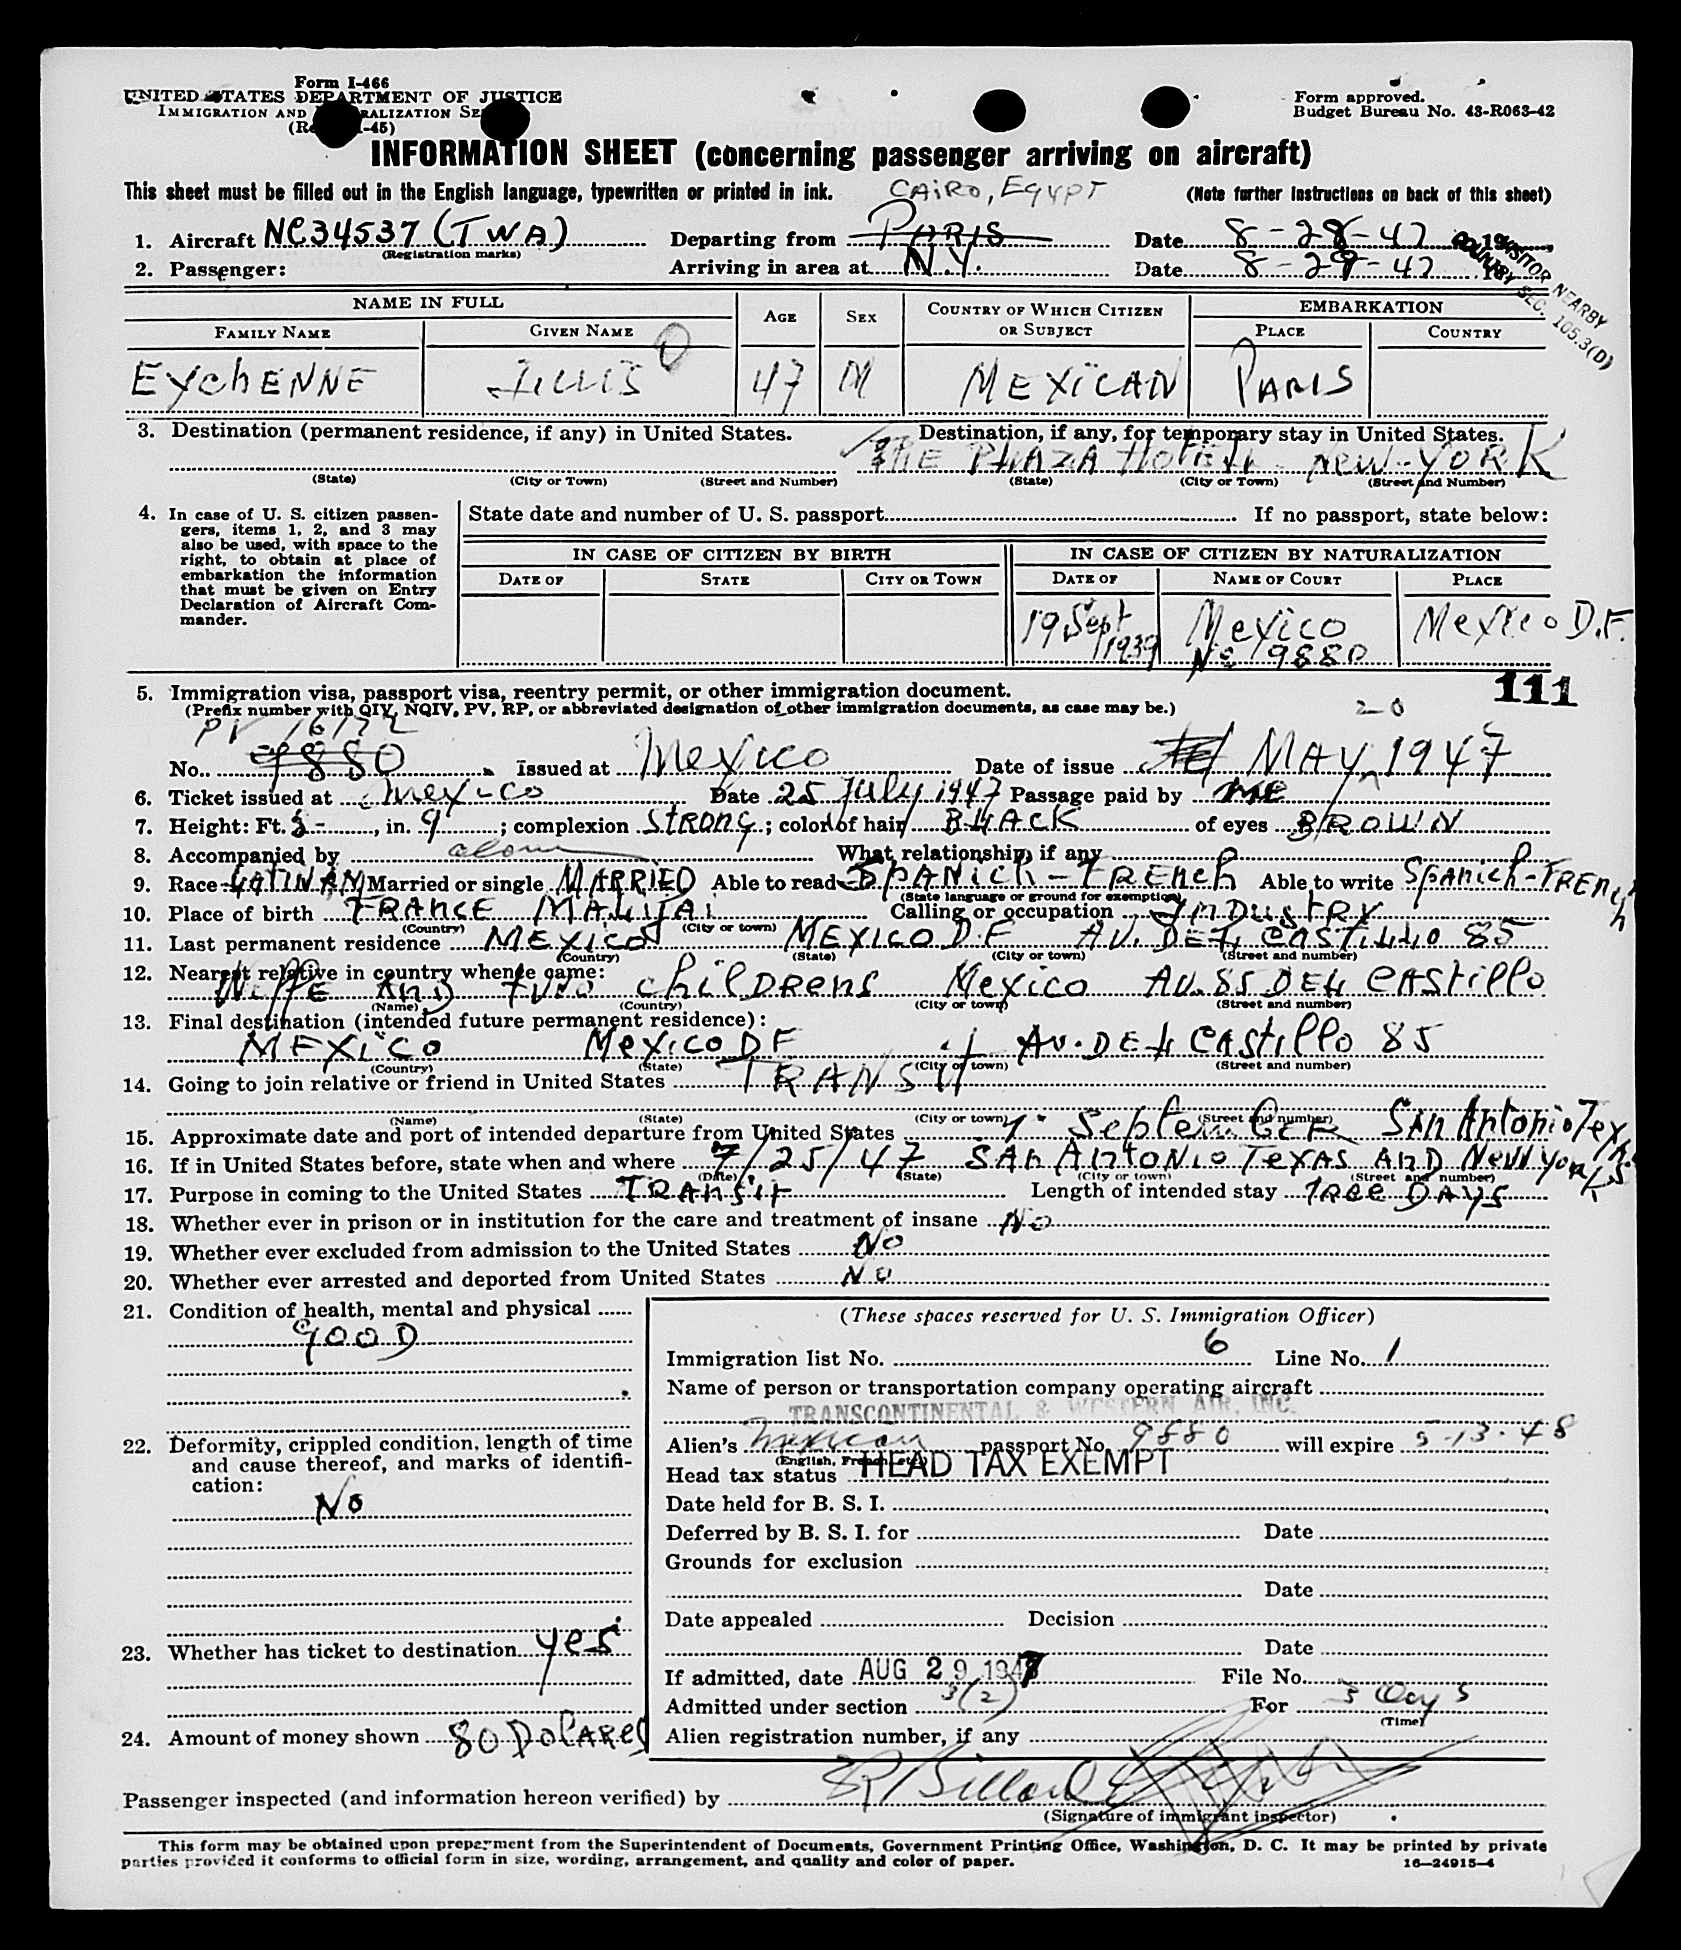 Form I-466
UNITED STATES DEPARTMENT OF JUSTICE
IMMIGRATION AND NATURALIZATION SE
(Re -45)
Form approved.
Budget Bureau No. 43-R063-42
INFORMATION SHEET (concerning passenger arriving on aircraft)
This sheet must be filled out in the English language, typewritten or printed in ink.
CAIRO, EGYPT
(Note further instructions on back of this sheet)
1. Aircraft NC34537 (TWA) Departing from PARIS Date 8-28-47 19
(Registration marks)
2. Passenger: Arriving in area at N.Y. Date 8-29-47
VISITOR NEARBY
COUNTRY SEC. 105.3(D)
NAME IN FULL AGE SEX COUNTRY OF WHICH CITIZEN OR SUBJECT EMBARKATION
FAMILY NAME GIVEN NAME PLACE COUNTRY
EYCHENNE 47 M MEXICAN PARIS
3. Destination (permanent residence, if any) in United States. Destination, if any, for temporary stay in United States.
THE PLAZA HOTEL NEW-YORK
(State) (City or Town) (Street and Number) (State) (City or Town) (Street and Number)
4. In case of U. S. citizen passengers, items 1, 2, and 3 may also be used, with space to the right, to obtain at place of embarkation the information that must be given on Entry Declaration of Aircraft Commander.
State date and number of U. S. passport If no passport, state below:
IN CASE OF CITIZEN BY BIRTH IN CASE OF CITIZEN BY NATURALIZATION
DATE OF STATE CITY OR TOWN DATE OF NAME OF COURT PLACE
19 Sept 1939 Mexico No 9880 Mexico D.F.
111
5. Immigration visa, passport visa, reentry permit, or other immigration document.
(Prefix number with QIV, NQIV, PV, RP, or abbreviated designation of other immigration documents, as case may be.)
PV 16172 20
No. 9880 Issued at Mexico Date of issue MAY 1947
6. Ticket issued at Mexico Date 25 July 1947 Passage paid by ME
7. Height: Ft. 5 - , in. 9 ; complexion STRONG ; color of hair BLACK of eyes BROWN
8. Accompanied by alone What relationship, if any
9. Race LATIN AM Married or single MARRIED Able to read SPANICH-FRENCH Able to write SPANICH-FRENCH
(State language or ground for exemption)
10. Place of birth FRANCE Calling or occupation INDUSTRY
(Country) (City or town)
11. Last permanent residence MEXICO MEXICO D.F AV. DEL CASTILLO 85
(Country) (State) (City or town) (Street and number)
12. Nearest relative in country whence came:
WIFFE AND TWO CHILDRENS Mexico AV. 85 DEL CASTILLO
(Name) (Country) (City or town) (Street and number)
13. Final destination (intended future permanent residence):
MEXICO MEXICO DF AV. DEL CASTILLO 85
(Country) (State) (City or town) (Street and number)
14. Going to join relative or friend in United States TRANSIT
(Name) (State) (City or town) (Street and number)
15. Approximate date and port of intended departure from United States 1 - SEPTEMBER SAN ANTONIO TEX
16. If in United States before, state when and where 7/25/47 SAN ANTONIO TEXAS AND NEW YORK
(Date) (State) (City or town) (Street and number)
17. Purpose in coming to the United States TRANSIT Length of intended stay TREE DAYS
18. Whether ever in prison or in institution for the care and treatment of insane No
19. Whether ever excluded from admission to the United States No
20. Whether ever arrested and deported from United States No
21. Condition of health, mental and physical
GOOD
22. Deformity, crippled condition, length of time and cause thereof, and marks of identification:
No
23. Whether has ticket to destination yes
24. Amount of money shown 80 DOLARES
(These spaces reserved for U. S. Immigration Officer)
Immigration list No. 6 Line No. 1
Name of person or transportation company operating aircraft
TRANSCONTINENTAL & WESTERN AIR, INC.
Alien's Mexican passport No. 9880 will expire 5-13-48
(English, French, etc.)
Head tax status HEAD TAX EXEMPT
Date held for B. S. I.
Deferred by B. S. I. for Date
Grounds for exclusion
Date
Date appealed Decision
Date
If admitted, date AUG 29 1947 File No.
Admitted under section 3(2) For 3 days
(Time)
Alien registration number, if any
Passenger inspected (and information hereon verified) by
(Signature of immigrant inspector)
This form may be obtained upon prepayment from the Superintendent of Documents, Government Printing Office, Washington, D. C. It may be printed by private
parties provided it conforms to official form in size, wording, arrangement, and quality and color of paper.
16—24915-4